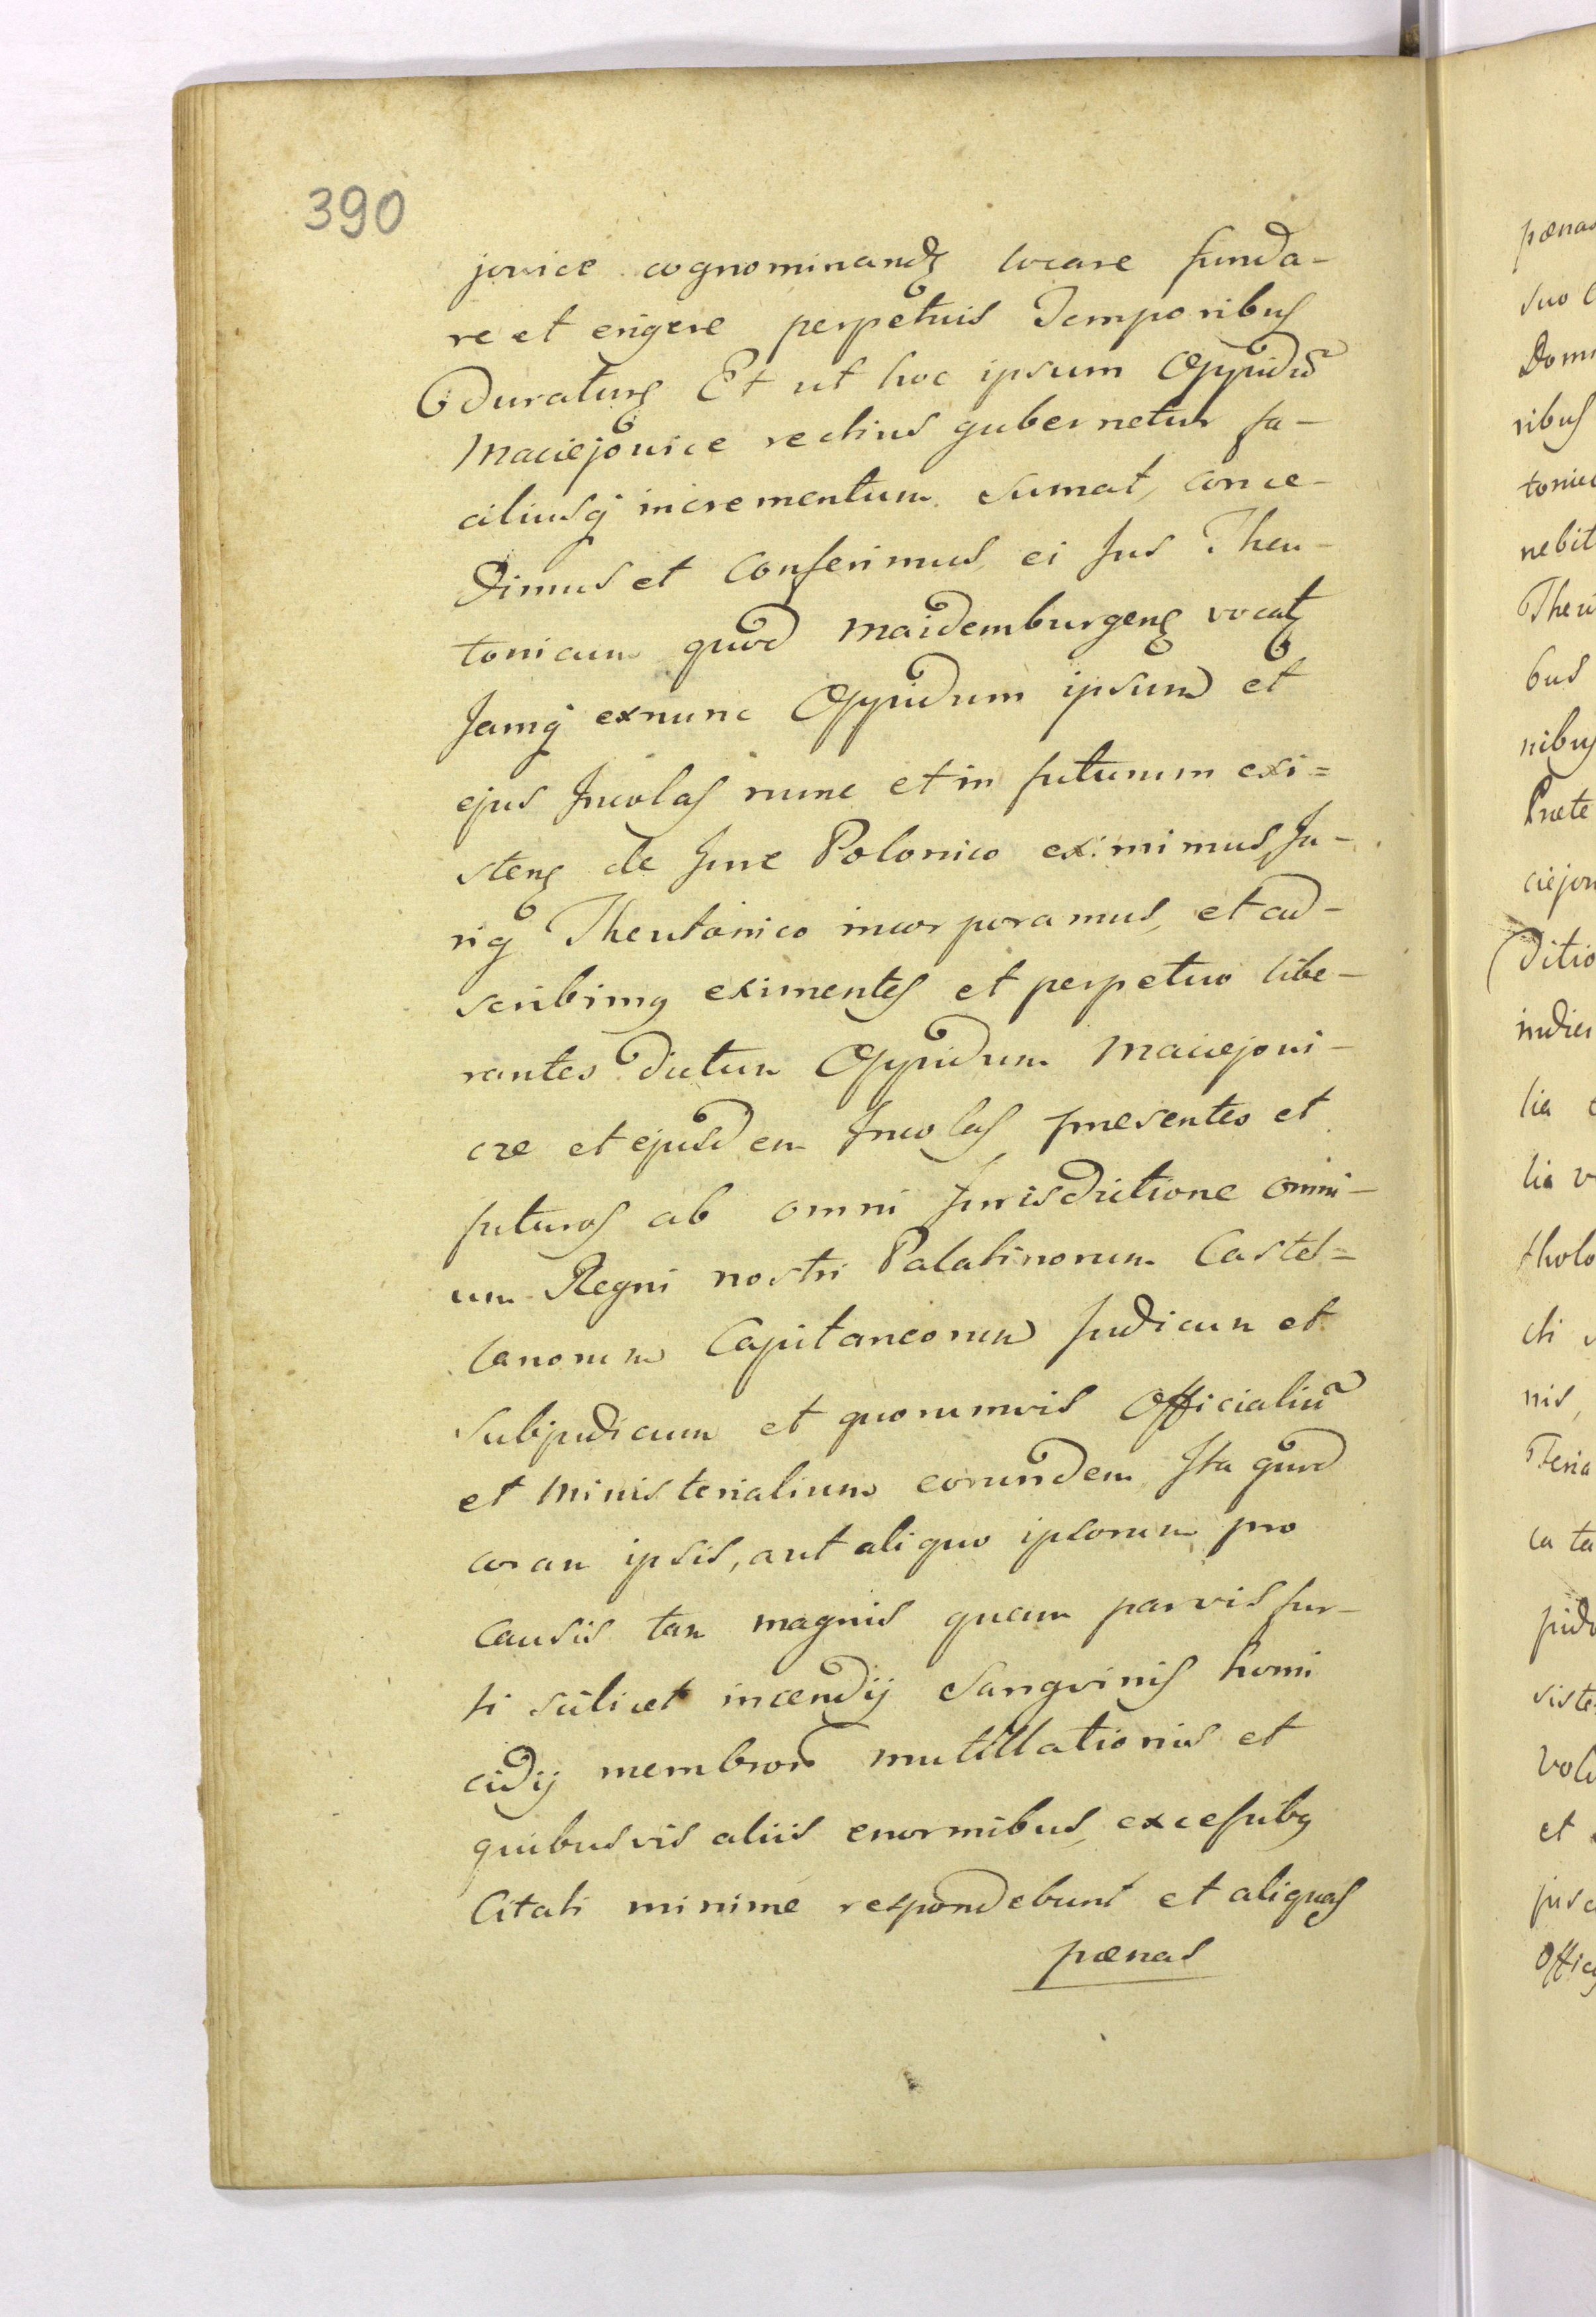 390
jovice cognominand locare funda-
re et erigere perpetuis Temporibus
Duratur Et ut hoc ipsum Oppidū
Maciejovice rectius gubernetur fa-
ciliusq incrementum sumat, conce-
Dimus et Conferimus ei Jus Theu-
tonicum quod Maidemburgens vocat
Jamq exnunc Oppidum ipsum et
ejus Incolas nunc et in futurum exi=
stens de Jure Polonico eximimus Ju-
riq Theutonico incorporamus, et ad-
scribimus eximentes et perpetuo libe-
rantes dictum Oppidum Maciejovi-
cze et ejusdem Incolas presentes et
futuros ab omni Jurisdictione omni-
um Regni nostri Palatinorum Castel=
lanorum Capitaneorum Judicum et
Subjudicum et quorumvis Officialiū
et Ministerialium eorundem Ita quod
coram ipsis, aut aliquo ipsorum pro
Causis tam magnis quam parvis fur-
ti scilicet incendij Sangvinis homi
cidij membror mutillationis et
quibusvis aliis enormibus, excessibus
Citati minime respondebunt et aliquas
pænas
pænas
suo
Domi
ribus
tonic
nebit
Theu
bus
nibus
Præte
ciejov
Ditio
indici
lia
lia v
tholo
cti
nis,
Teria
ca ta
pido
siste
Volu
et
jus c
Offic